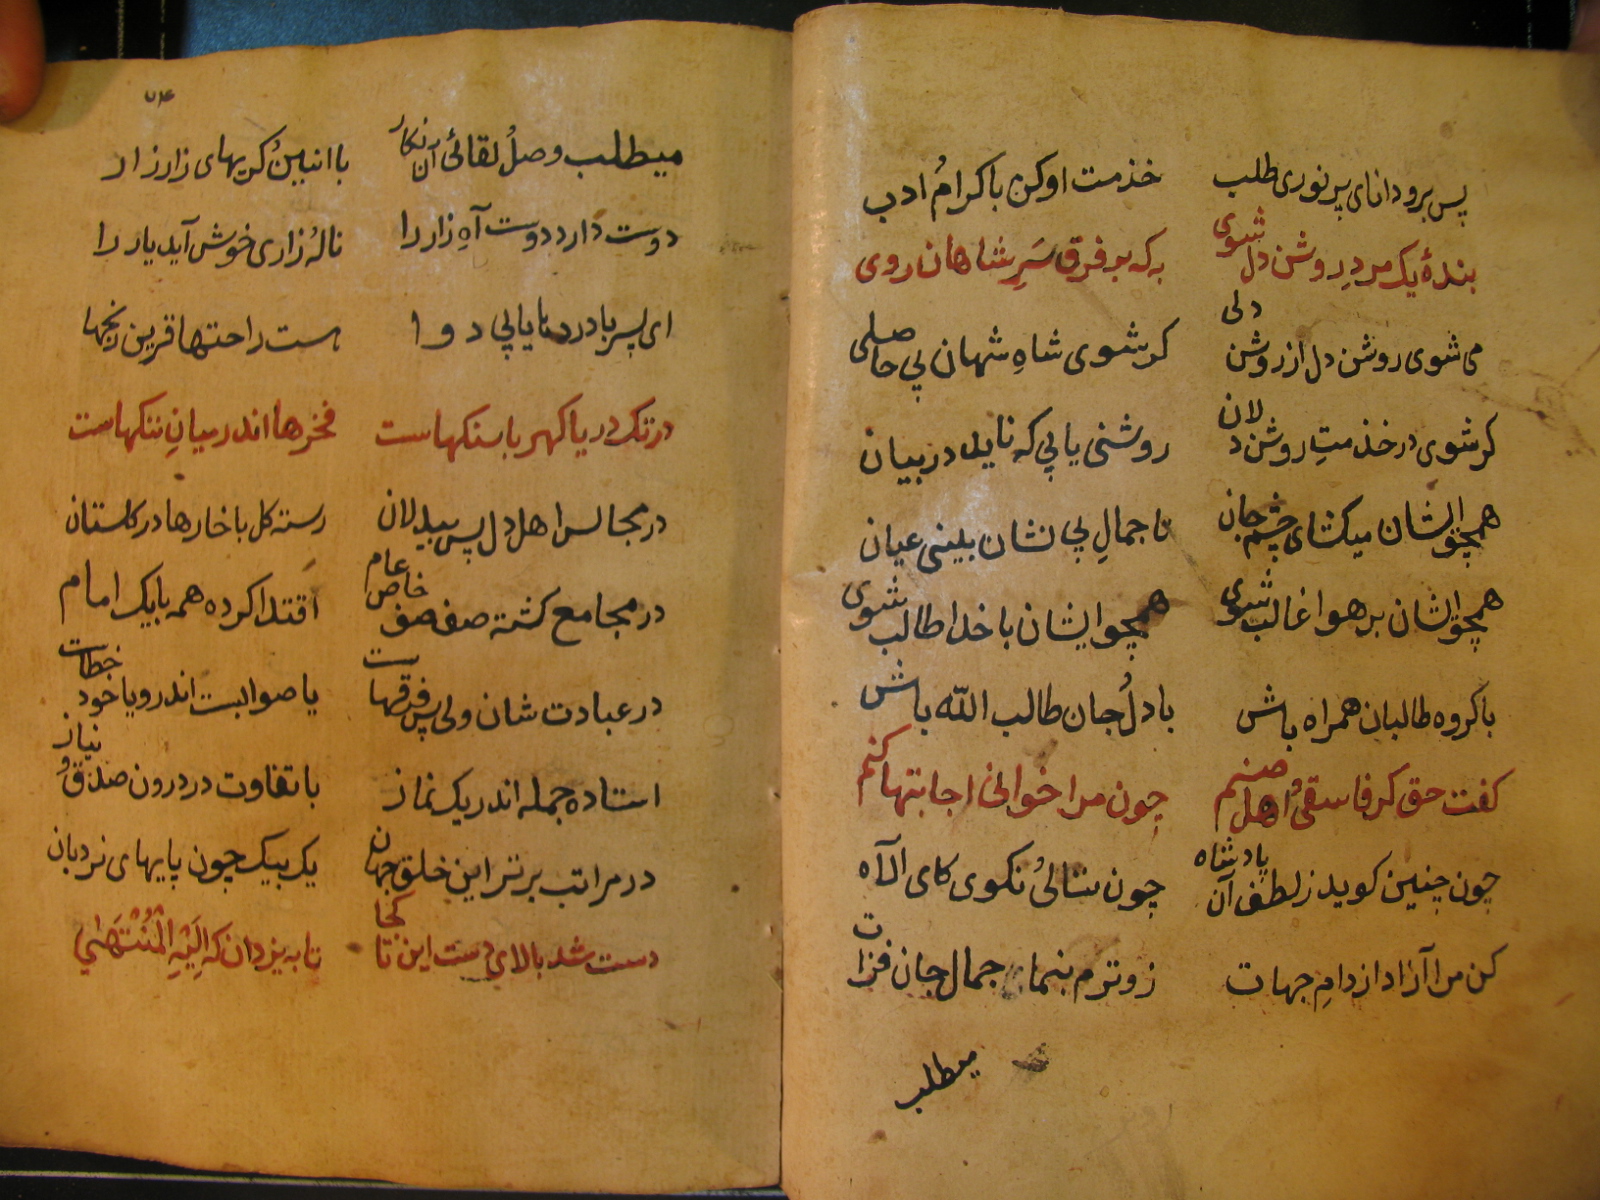 پس برو دانای پر نوری طلب خذمت او کن با کرام ادب
بندۀ یک مردِ روشن دل شوی به که بر فرق سَرِ شاهان روی
می شوی روشن دل از روشن دلی کر شوی شاهِ شهان بی حاصلی
کر شوی در خذمتِ روشن دلان روشنی یابی که ناید در بیان
همچو ایشان میکشای چشم جان تا جمالِ بی نشان بینی عیان
همچو ایشان بر هوا غالب شوی همچو ایشان با خدا طالب شوی
با کروه طالبان همراه باش با دلُ جان طالب اللّه باش
کفت حق کر فاسقی و اهل صنم چون مرا خوانی اجابتها کنم
چون چنین کوید ز لطف آن پادشاه چون ننالیُ نکوی کای الٓاه
کن مرا آزاد از دامِ جهات زوترم بنما جمال جان فزات
میطلب
۷۴
میطلب وصلُ لقائی آن نکار با انینُ کریهای زار زار
دوست دارد دوست آهِ زار را نالۀ زاری خوش آید یار را
ای پسر با دردها یابی دوا هست راحتها قرین رنجها
در تک دریا کهر با سنکهاست فخرها اندر میانِ ننکهاست
در مجالس اهل دل پس بیدلان رسته کل با خارها در کلستان
در مجامع کشته صف صف خاص عام اقتدا کرده همه با یک امام
در عبادت شان ولی پس فرقهاست یا صوابست اندرو یا خود خطاست
استاده جمله اندر یک نماز با تفاوت در درون صدقُ نیاز
در مراتب برتر این خلق جهان یک بیک چون پایهای نردبان
دست شد بالای دست این تا کجا تا به یزدان که اِلَیْهِ الْمُنْتَهٰی